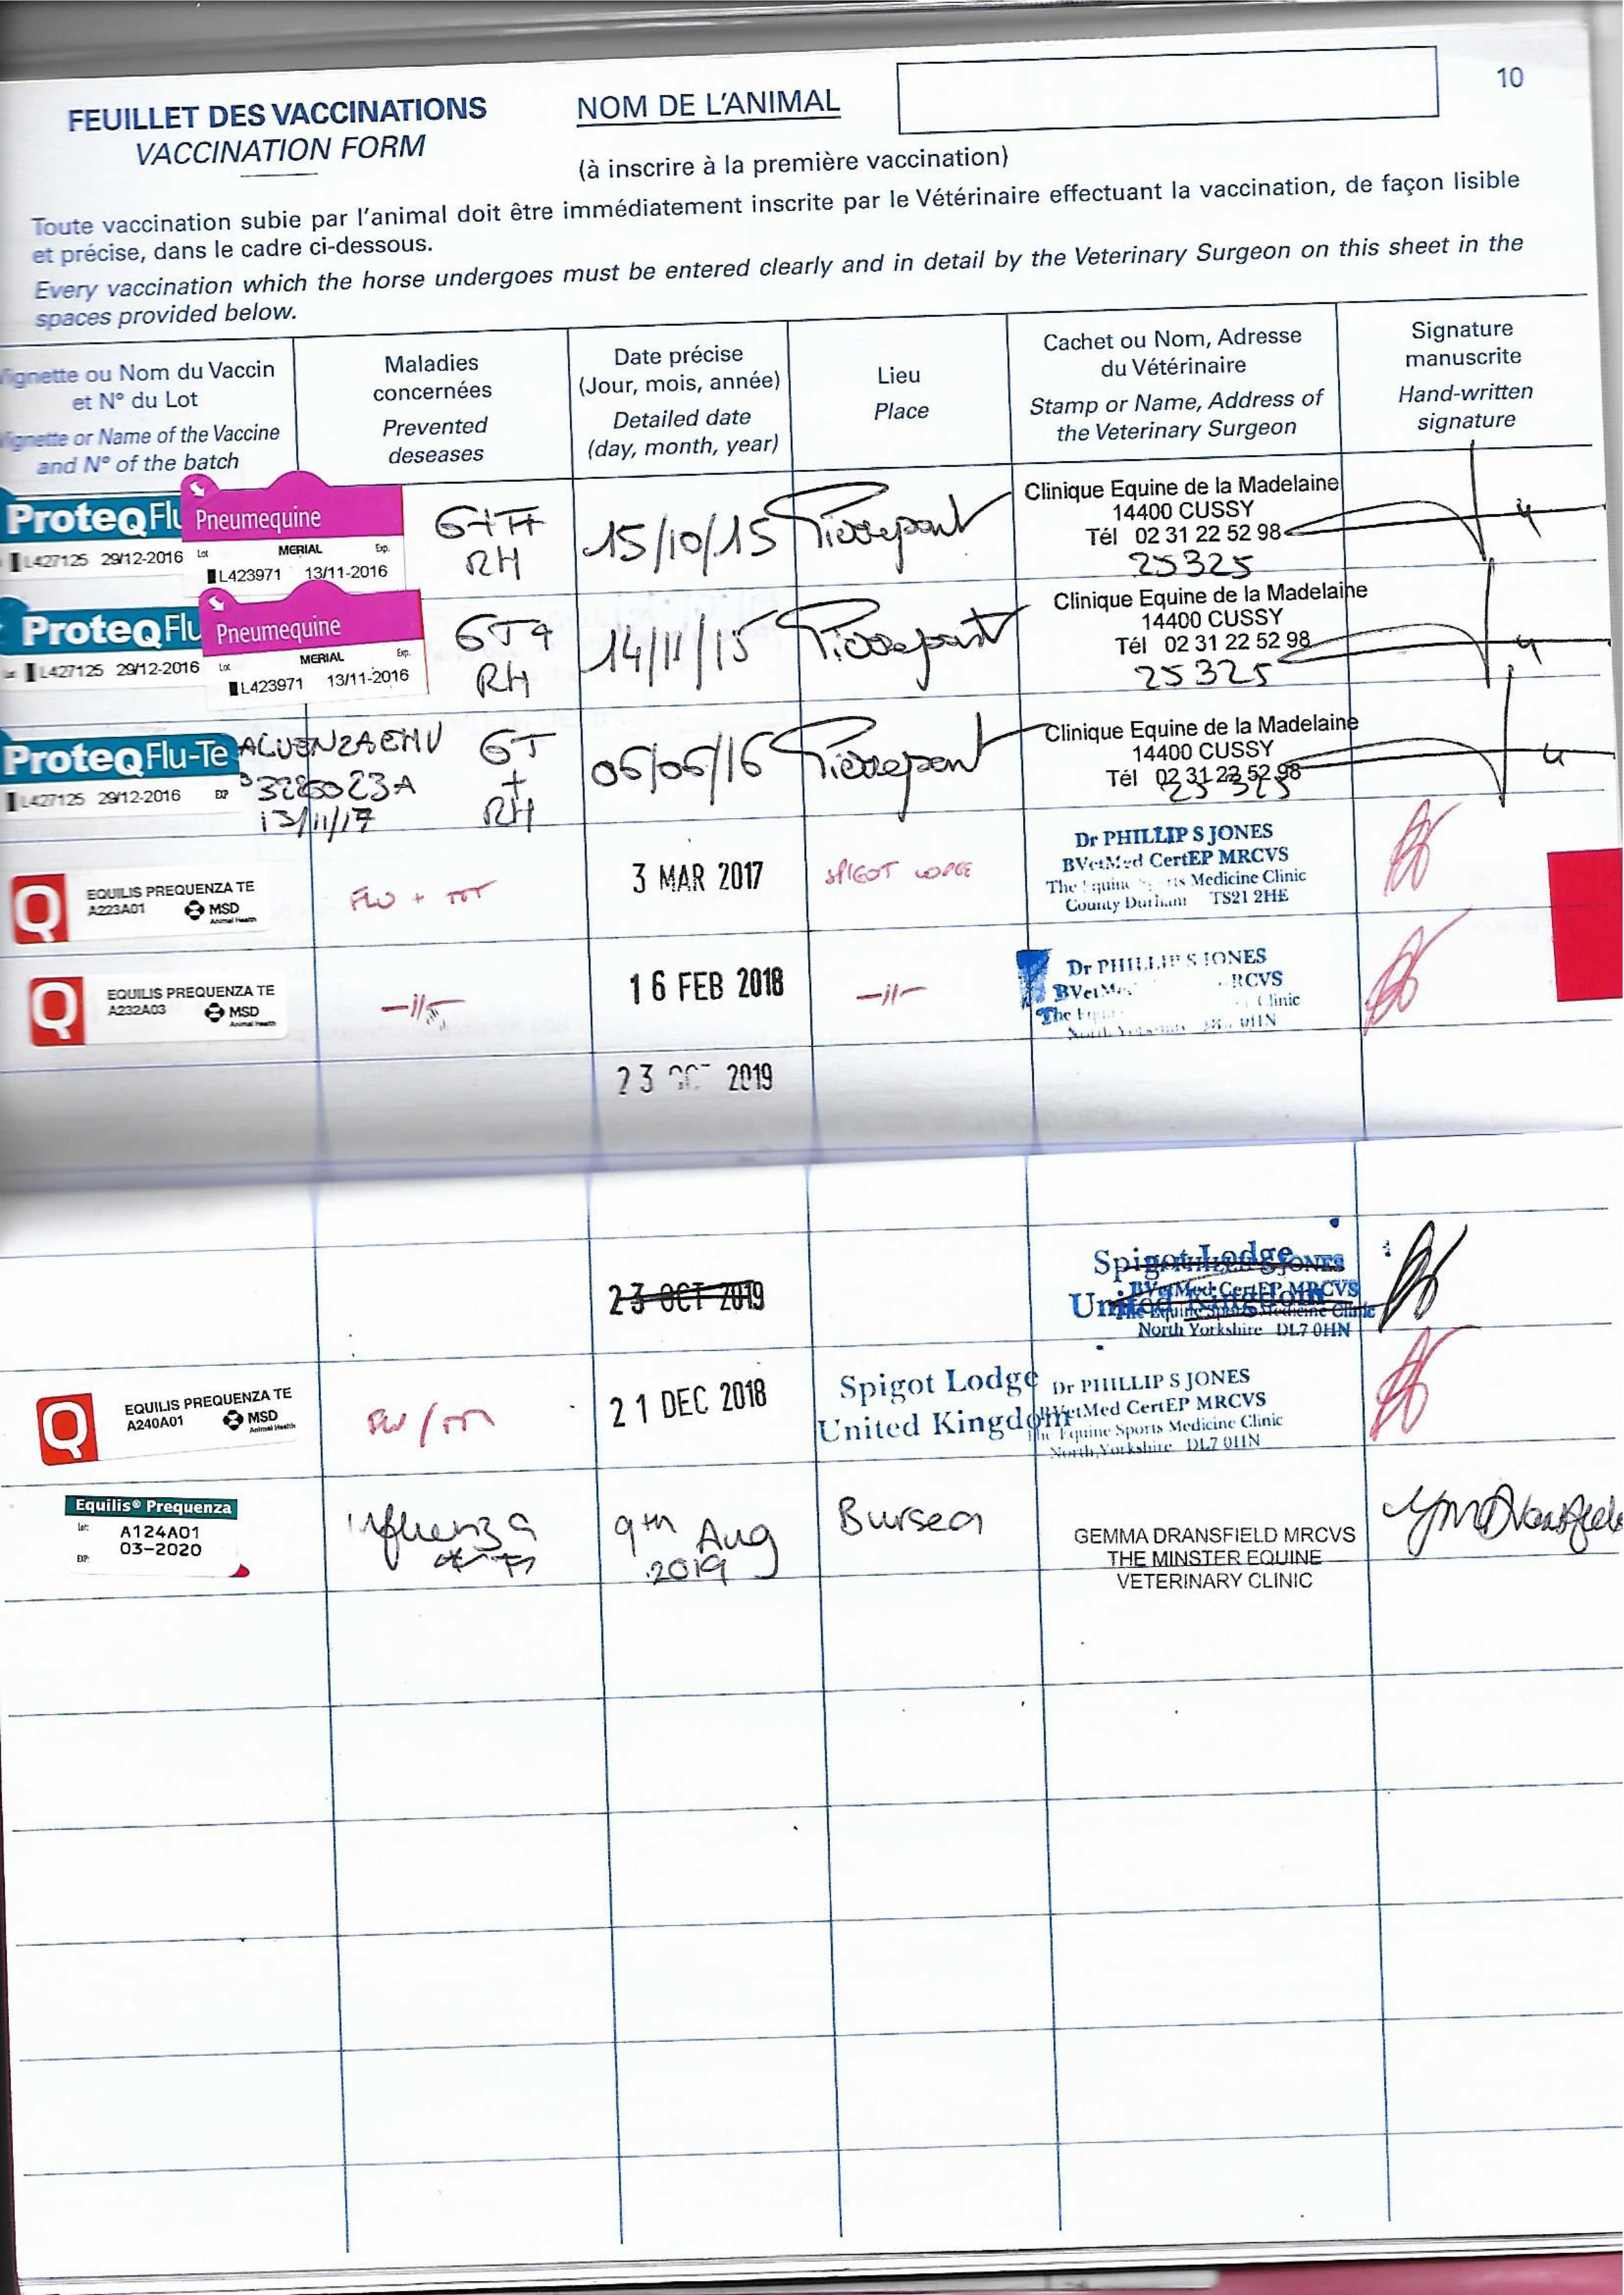 10
FEUILLET DES VACCINATIONS
VACCINATION FORM
NOM DE L'ANIMAL
(à inscrire à la première vaccination)
Toute vaccination subie par l'animal doit être immédiatement inscrite par le Vétérinaire effectuant la vaccination, de façon lisible
et précise, dans le cadre ci-dessous.
Every vaccination which the horse undergoes must be entered clearly and in detail by the Veterinary Surgeon on this sheet in the
spaces provided below.
Vignette ou Nom du Vaccin
et N° du Lot
Vignette or Name of the Vaccine
and N° of the batch
Maladies
concernées
Prevented
deseases
Date précise
(Jour, mois, année)
Detailed date
(day, month, year)
Lieu
Place
Cachet ou Nom, Adresse
du Vétérinaire
Stamp or Name, Address of
the Veterinary Surgeon
Signature
manuscrite
Hand-written
signature
ProteqFlu
L427125 29/12-2016
Pneumequine
Lot MERIAL Exp.
L423971 13/11-2016
RH
15/10/15
Pierrepont
Clinique Equine de la Madelaine
14400 CUSSY
Tél 02 31 22 52 98
25325
ProteqFlu
L427125 29/12-2016
Pneumequine
Lot MERIAL Exp.
L423971 13/11-2016
RH
14/11/15
Pierrepont
Clinique Equine de la Madelaine
14400 CUSSY
Tél 02 31 22 52 98
25325
ProteqFlu-Te
L427125 29/12-2016 EXP
13/11/17
GT
+
RH
06/06/16
Pierrepont
Clinique Equine de la Madelaine
14400 CUSSY
Tél 02 31 22 52 98
Q
EQUILIS PREQUENZA TE
A223A01 MSD
Animal Health
FLU + TET
3 MAR 2017
SPIGOT LODGE
Dr PHILLIP S JONES
BVetMed CertEP MRCVS
The Equine Sports Medicine Clinic
County Durham TS21 2HE
Q
EQUILIS PREQUENZA TE
A232A03 MSD
Animal Health
—//—
16 FEB 2018
—//—
Dr PHILLIP S JONES
RCVS
Clinic
23 OCT 2019
23 OCT 2019
Spigot Lodge
United Kingdom
BVetMed CertEP MRCVS
North Yorkshire DL7 0HN
Q
EQUILIS PREQUENZA TE
A240A01 MSD
Animal Health
21 DEC 2018
Spigot Lodge
United Kingdom
Dr PHILLIP S JONES
BVetMed CertEP MRCVS
The Equine Sports Medicine Clinic
North Yorkshire DL7 0HN
Equilis® Prequenza
Lot: A124A01
EXP: 03-2020
Influenza
9th Aug
2019
Bursea
GEMMA DRANSFIELD MRCVS
THE MINSTER EQUINE
VETERINARY CLINIC